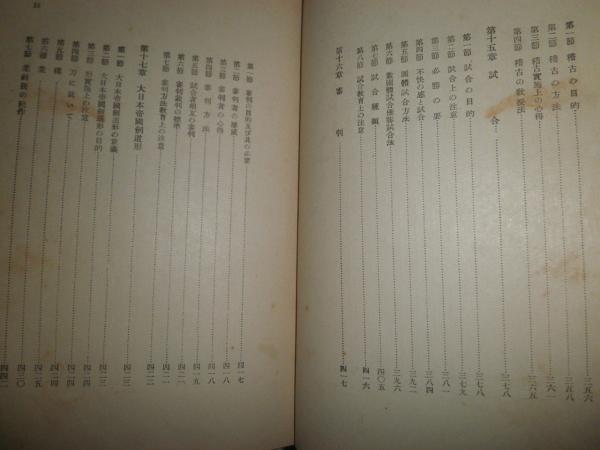 第一節 稽古の目的 三五六
第二節 稽古の方法 三五八
第三節 稽古實施上の心得 三六五
第四節 稽古の敎授法
第十五章 試合 三七八
第一節 試合の目的 三七八
第二節 試合上の注意 三七九
第三節 必勝の要 三八一
第四節 不快の感と試合 三八四
第五節 團體試合方法 三九二
第六節 三九六
第七節 試合種類 四〇五
第八節 試合敎育上の注意 四一六
第十六章 審判 四一七
第一節 審判の目的及び其の必要 四一七
第二節 審判者の
第三節 審判者の心得 四一八
第四節 審判方法 四一八
第五節 試合者相互の審判 四一九
第六節 審判裁判の標準 四二一
第七節 審判方法敎育上の注意 四二一
第十七章 大日本帝國劍道形 四二二
第一節 大日本帝國劍道形の意義 四二三
第二節 大日本帝國劍道形の目的 四二三
第三節 形實施上の注意 四二三
第四節 刀に就いて 四二四
第五節 禮 四二四
第六節 四二五
第七節
四三〇
四四一
33